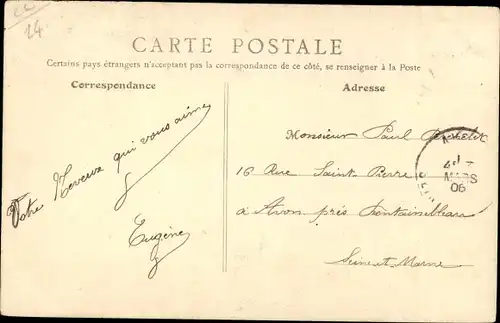 24
CARTE POSTALE
Certains pays étrangers n'acceptant pas la correspondance de ce côté, se renseigner à la Poste
Correspondance
Votre Neveux qui vous aime
Eugène
Adresse
Monsieur Paul
16 Rue Saint-Pierre
à Avon près Fontainebleau
Seine et Marne
MARS
06